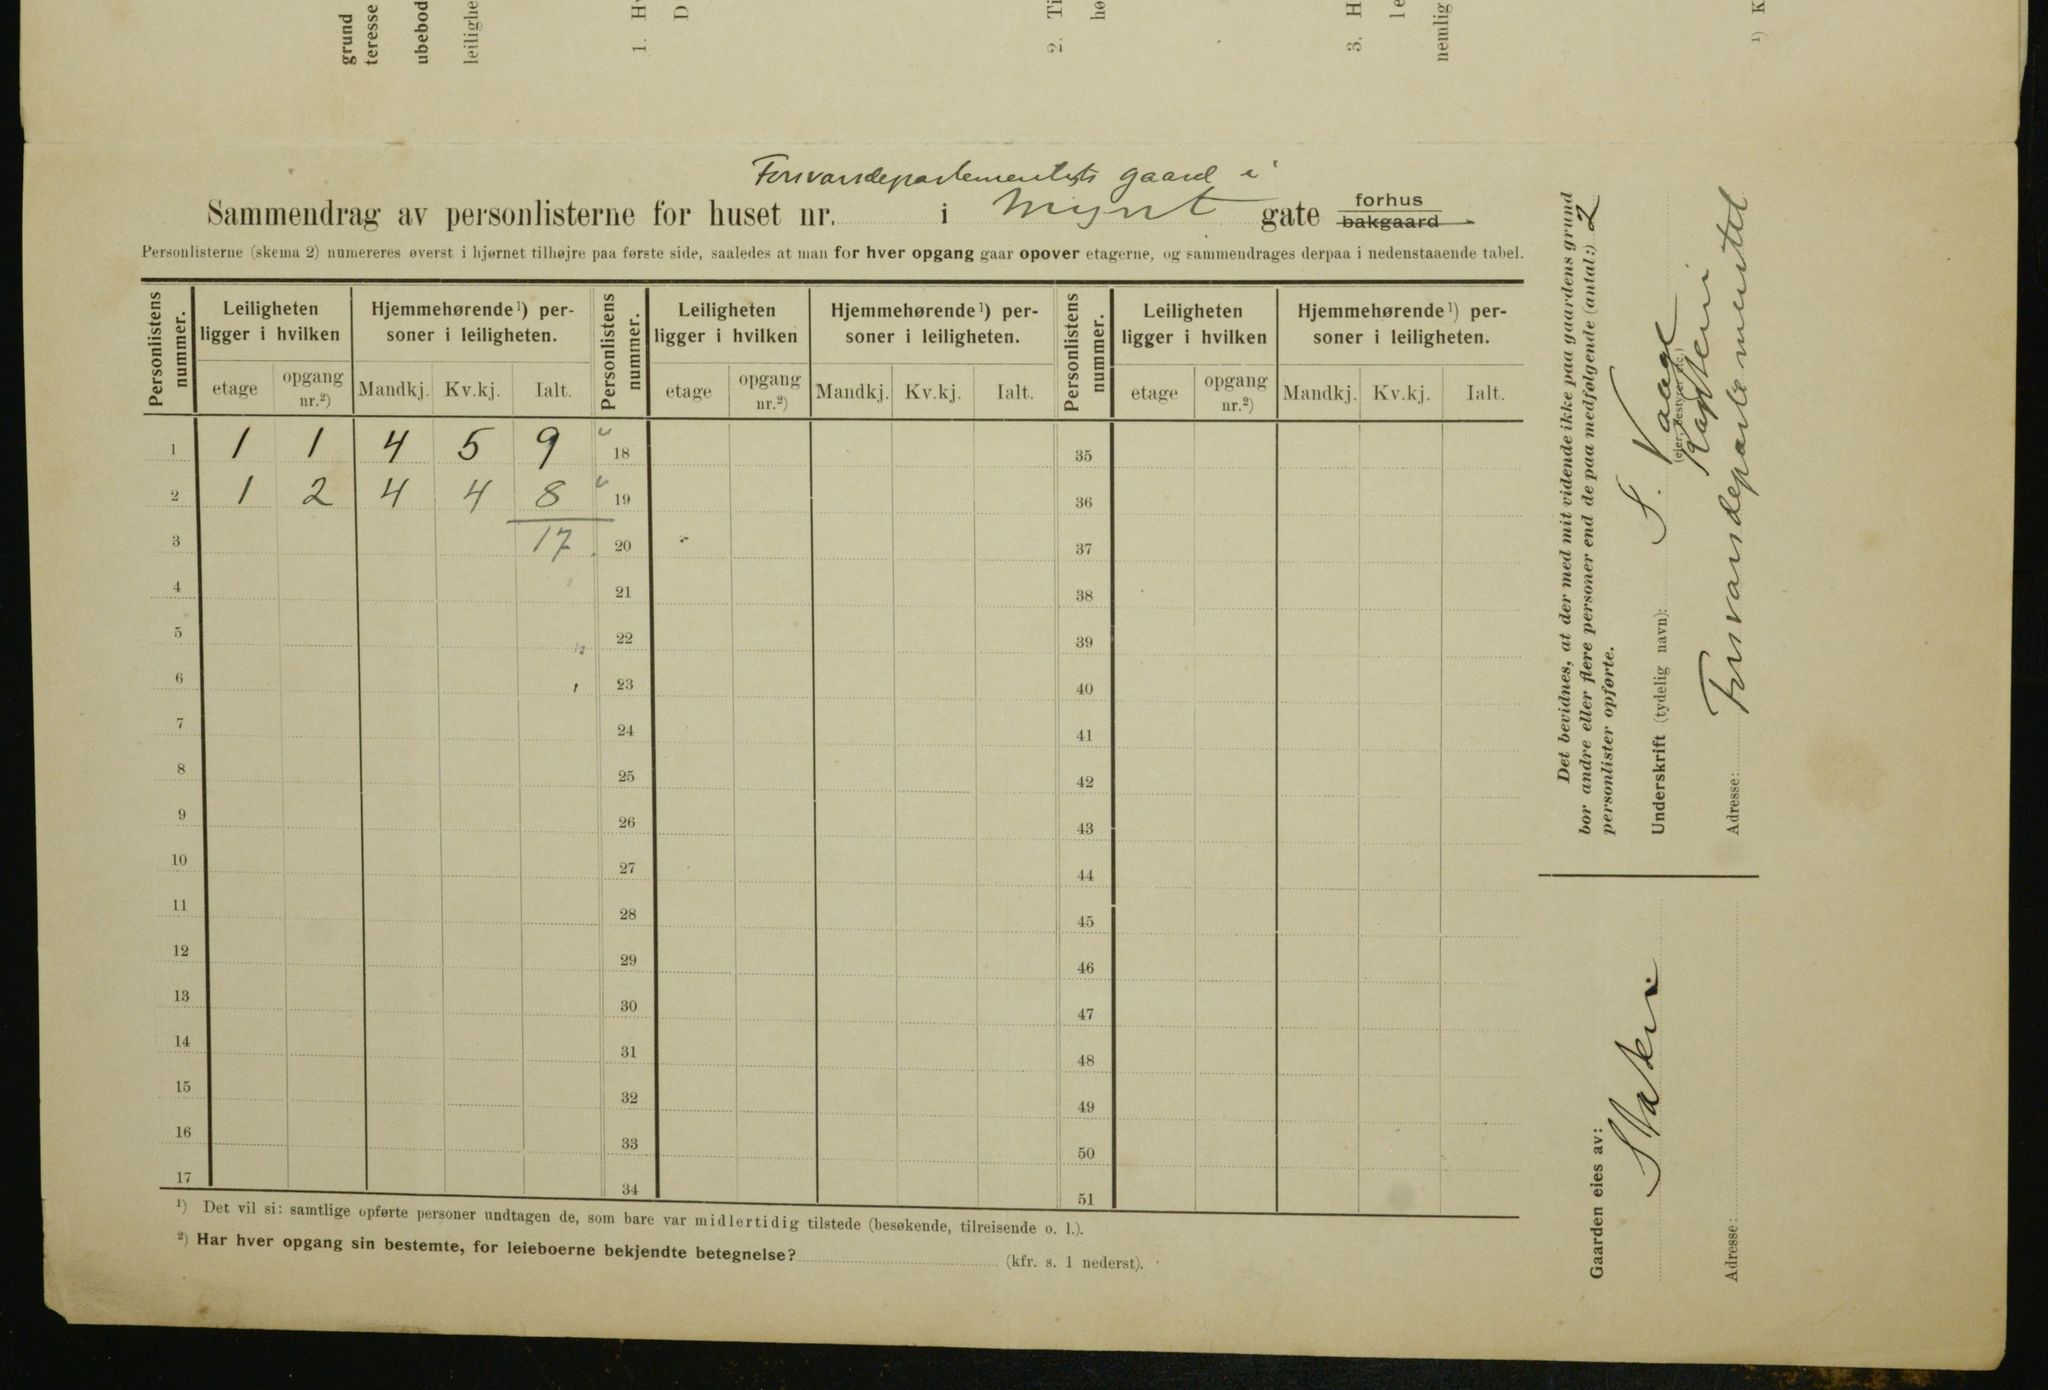 grund
teresse
ubebod
leilighe
1. Hv
D
2. Ti
hø
3. H
le
nemlig
¹) K
Forsvarsdepartementets gaard i
Sammendrag av personlisterne for huset nr. i Mynt gate forhus
bakgaard
Personlisterne (skema 2) numereres øverst i hjørnet tilhøjre paa første side, saaledes at man for hver opgang gaar opover etagerne, og sammendrages derpaa i nedenstaaende tabel.
Personlistens nummer. Leiligheten ligger i hvilken Hjemmehørende¹) personer i leiligheten. Personlistens nummer. Leiligheten ligger i hvilken Hjemmehørende¹) personer i leiligheten. Personlistens nummer. Leiligheten ligger i hvilken Hjemmehørende¹) personer i leiligheten.
etage opgang nr.²) Mandkj. Kv.kj. Ialt. etage opgang nr.²) Mandkj. Kv.kj. Ialt. etage opgang nr.²) Mandkj. Kv.kj. Ialt.
1 1 1 4 5 9 18 35
2 1 2 4 4 8 19 36
3 17 20 37
4 21 38
5 22 39
6 23 40
7 24 41
8 25 42
9 26 43
10 27 44
11 28 45
12 29 46
13 30 47
14 31 48
15 32 49
16 33 50
17 34 51
¹) Det vil si: samtlige opførte personer undtagen de, som bare var midlertidig tilstede (besøkende, tilreisende o. l.).
²) Har hver opgang sin bestemte, for leieboerne bekjendte betegnelse? (kfr. s. 1 nederst).
Det bevidnes, at der med mit vidende ikke paa gaardens grund
bor andre eller flere personer end de paa medfølgende (antal:) 2
personlister opførte.
Underskrift (tydelig navn): S. Vaage
(eier, bestyrer etc.)
Adresse: Forsvarsdepartementet
Gaarden eies av: Staten
Adresse: